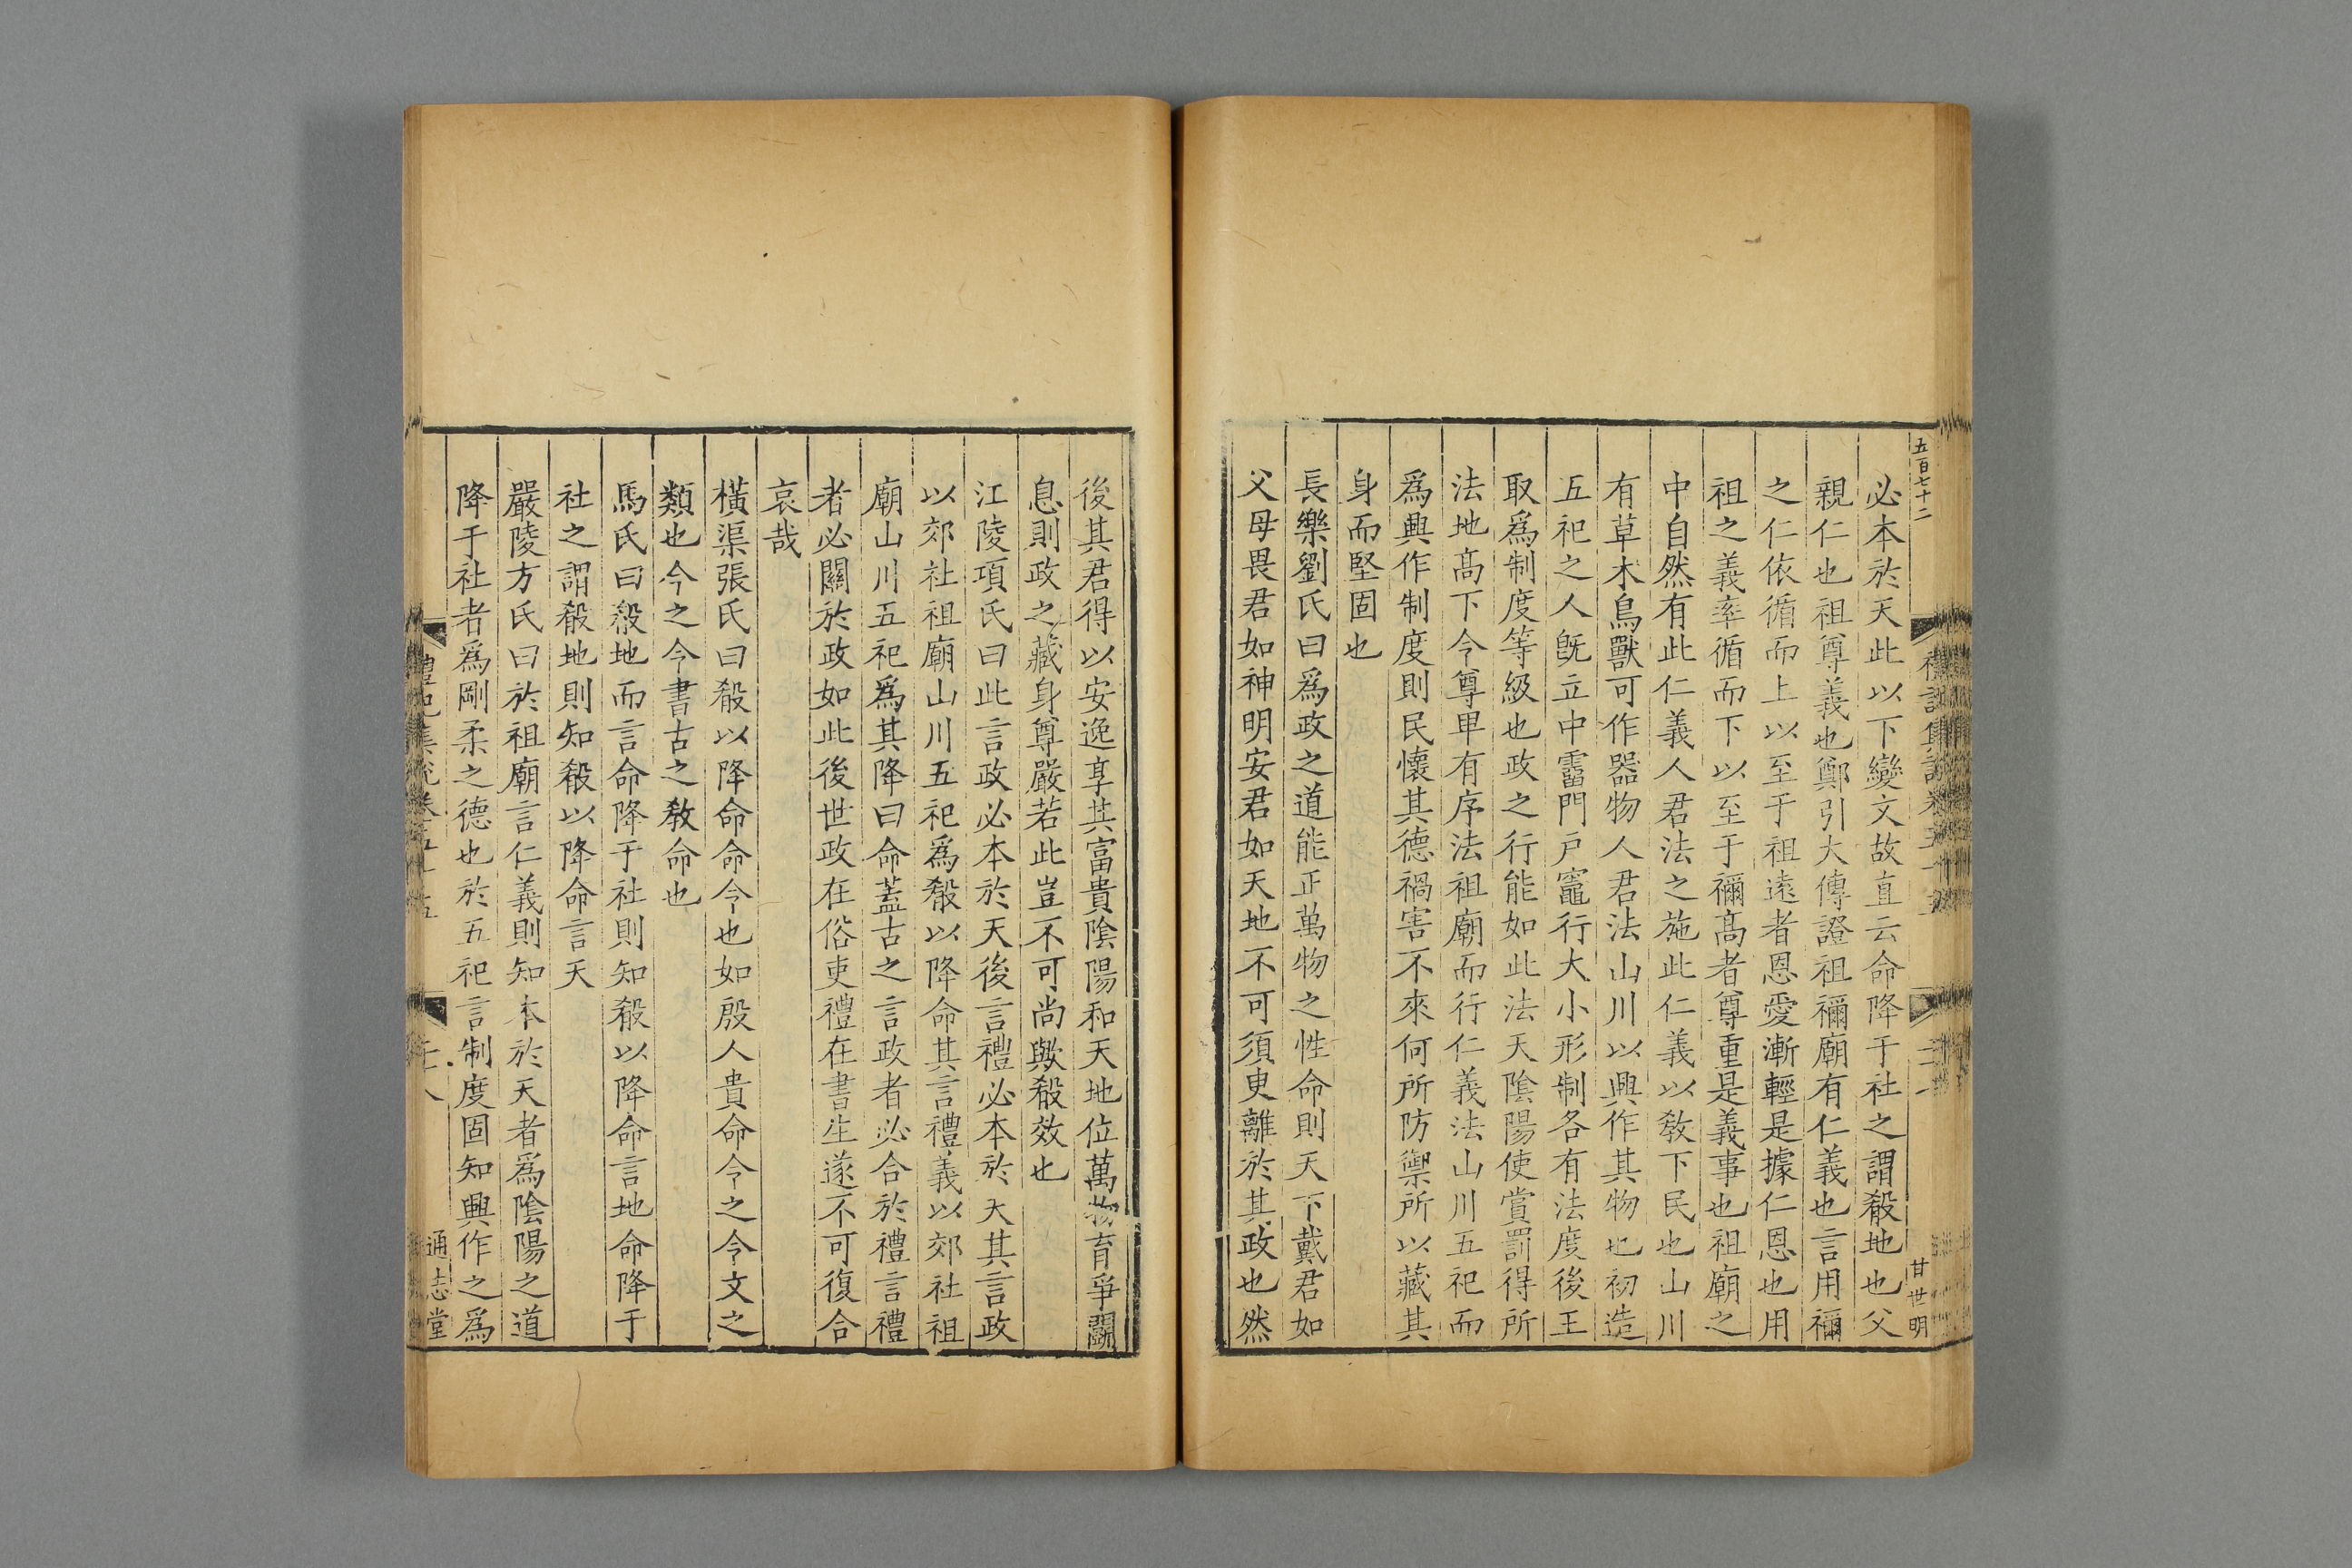 五百七十二
必本於天此以下變文故直云命降于社之謂殽地也父
親仁也祖尊義也鄭引大傳證祖禰廟有仁義也言用禰
之仁依循而上以至于祖遠者恩愛漸輕是據仁恩也用
祖之義率循而下以至于禰髙者尊重是義事也祖廟之
中自然有此仁義人君法之施此仁義以敎下民也山川
有草木鳥獸可作器物人君法山川以興作其物也初造
五祀之人旣立中霤門戸竈行大小形制各有法度後王
取爲制度等級也政之行能如此法天隂陽使賞罰得所
法地髙下令尊卑有序法祖廟而行仁義法山川五祀而
爲興作制度則民懷其德禍害不來何所防禦所以藏其
身而堅固也
長樂劉氏曰爲政之道能正萬物之性命則天下戴君如
父母畏君如神明安君如天地不可須臾離於其政也然
甘世明
後其君得以安逸享其富貴隂陽和天地位萬物育爭鬭
息則政之藏身尊嚴若此豈不可尚歟殽效也
江陵項氏曰此言政必本於天後言禮必本於天其言政
以郊社祖廟山川五祀爲殽以降命其言禮義以郊社祖
廟山川五祀爲其降曰命葢古之言政者必合於禮言禮
者必關於政如此後世政在俗吏禮在書生遂不可復合
哀哉
橫渠張氏曰殽以降命命令也如殷人貴命令之令文之
類也今之令書古之敎命也
馬氏曰殽地而言命降于社則知殽以降命言地命降于
社之謂殽地則知殽以降命言天
嚴陵方氏曰於祖廟言仁義則知本於天者爲隂陽之道
降于社者爲剛柔之德也於五祀言制度固知興作之爲
禮記集說卷五十五
通志堂